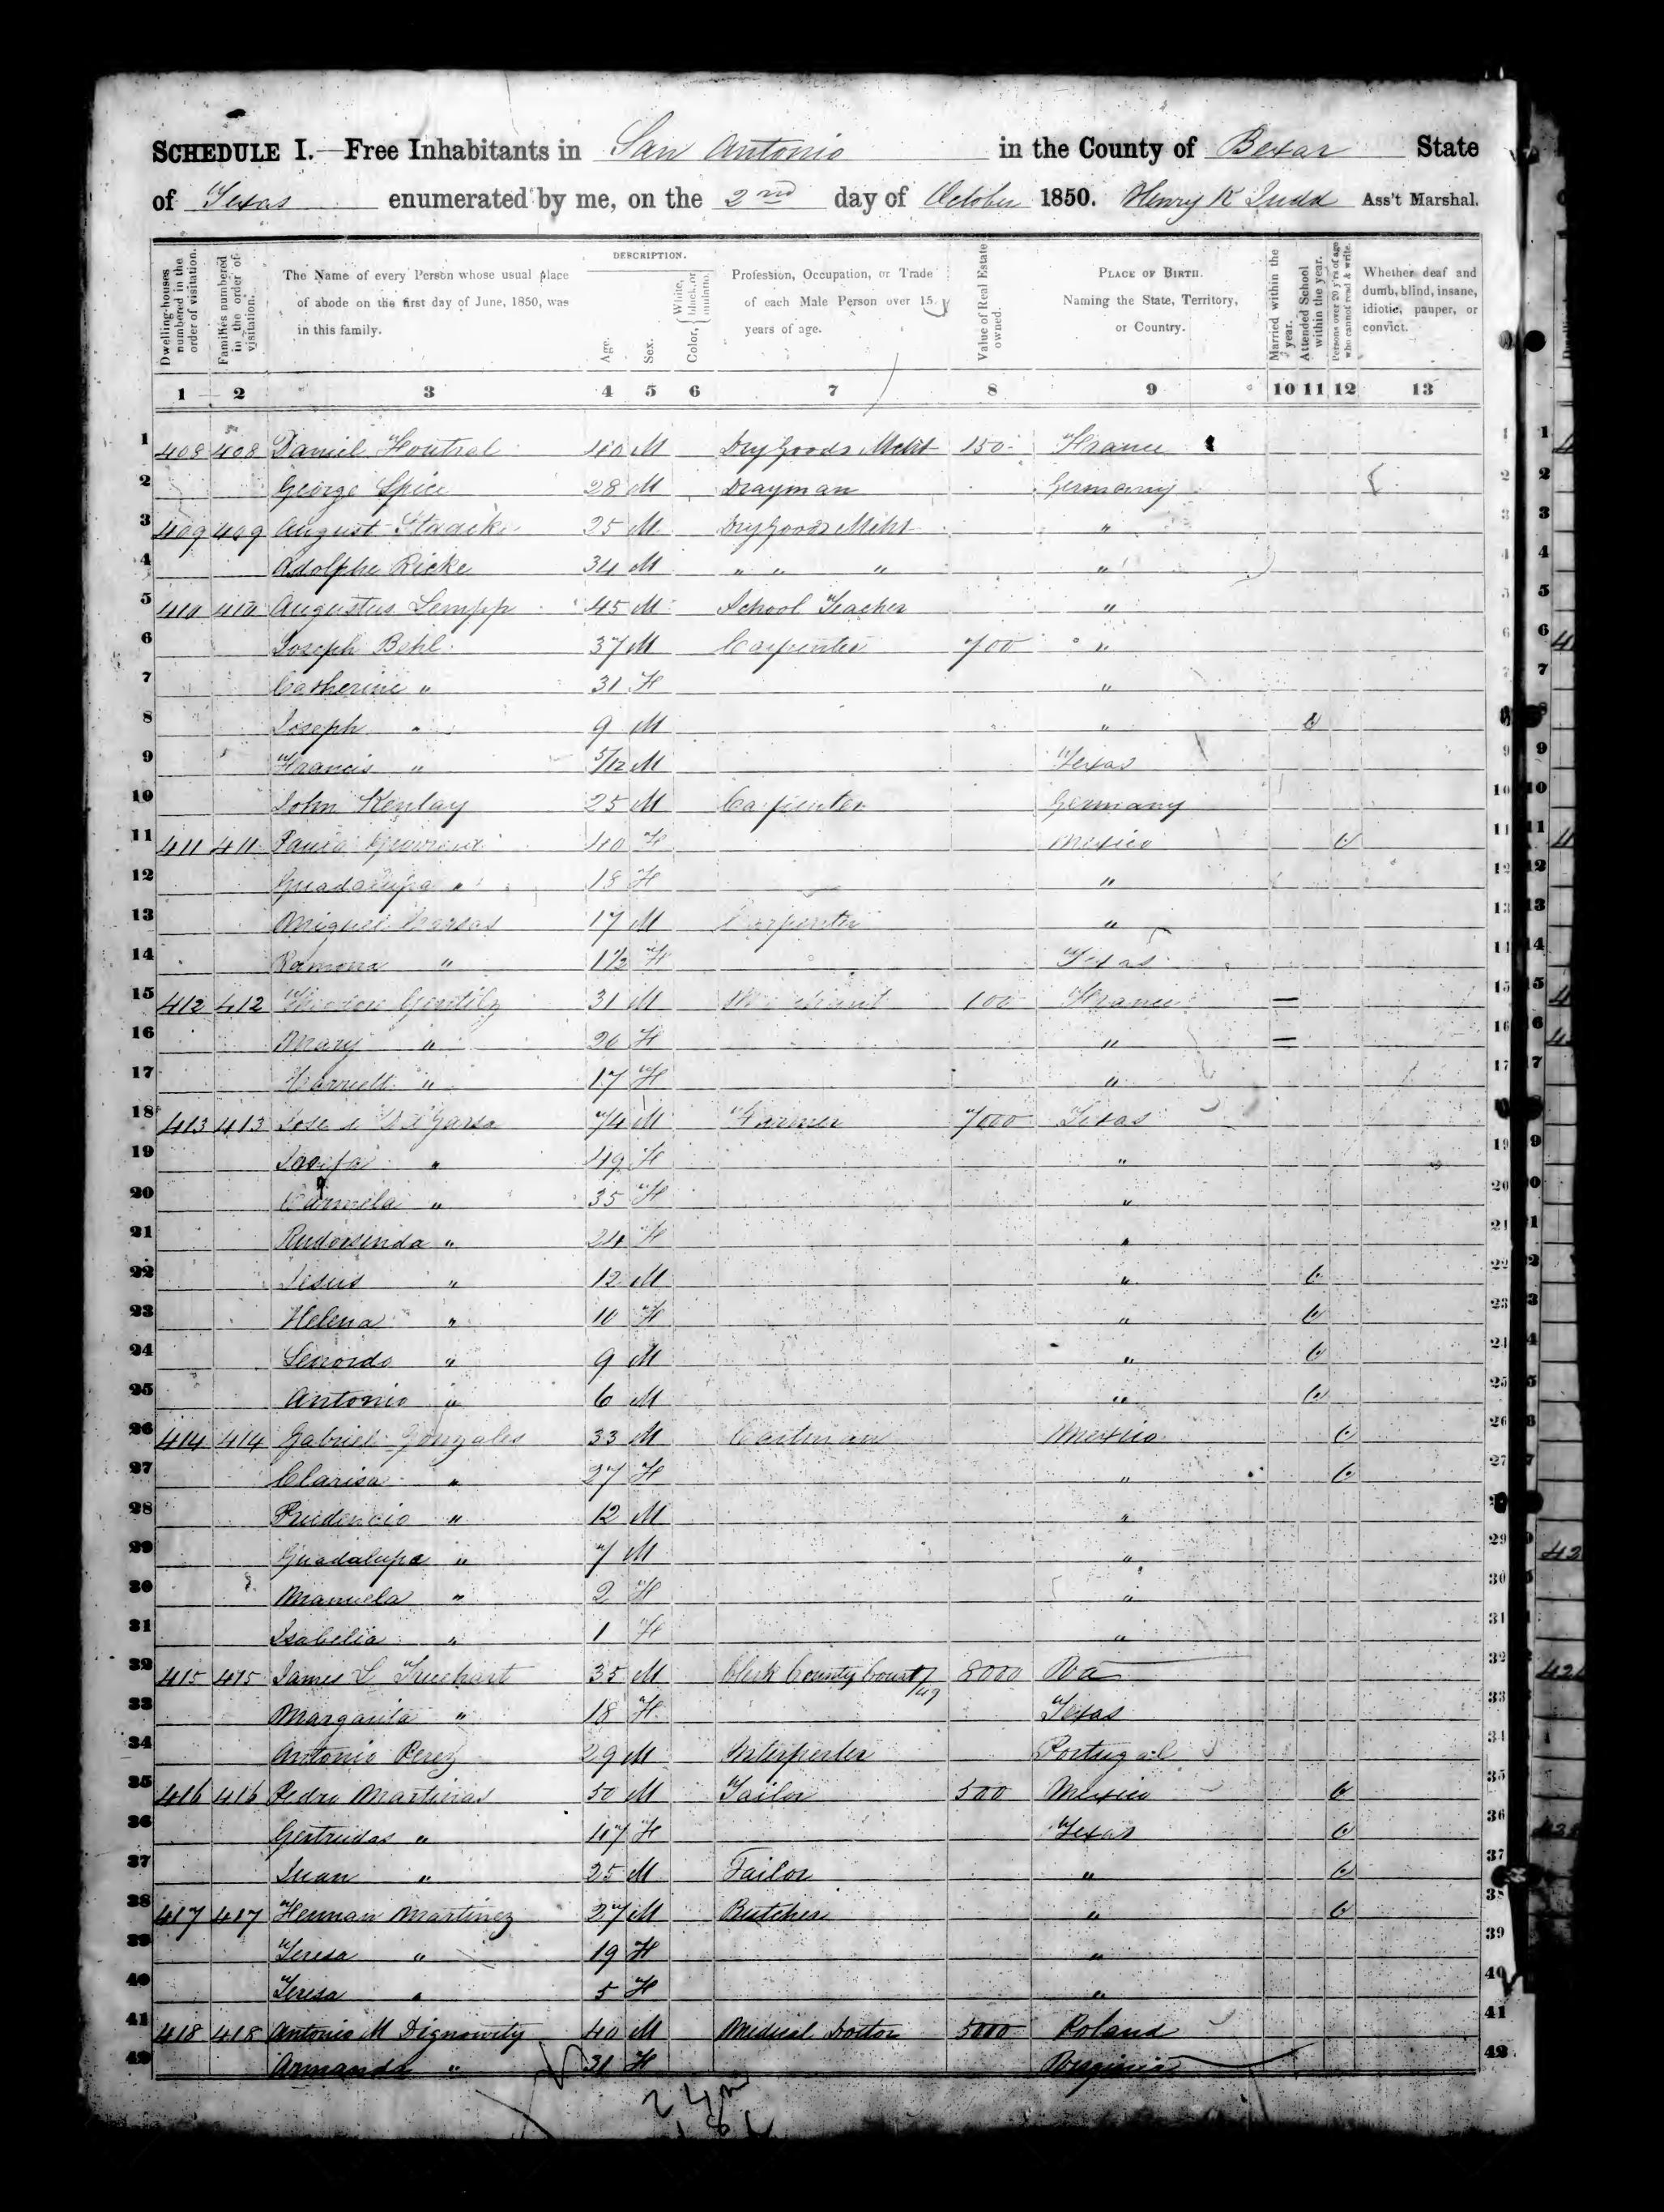 SCHEDULE I.—Free Inhabitants in San Antonio in the County of Bexar State
of Texas enumerated by me, on the 2nd day of October 1850. Henry K Judd Ass't Marshal.
Dwelling-houses numbered in the order of visitation.
Families numbered in the order of visitation.
The Name of every Person whose usual place of abode on the first day of June, 1850, was in this family.
DESCRIPTION.
Age.
Sex.
Color, { White, black, or mulatto.
Profession, Occupation, or Trade of each Male Person over 15 years of age.
Value of Real Estate owned.
PLACE OF BIRTH. Naming the State, Territory, or Country.
Married within the year.
Attended School within the year.
Persons over 20 y'rs of age who cannot read & write.
Whether deaf and dumb, blind, insane, idiotic, pauper, or convict.
1 2 3 4 5 6 7 8 9 10 11 12 13
1 408 408 Daniel 40 M Dry Goods Mcht 150 France 1
2 George Spice 28 M Drayman Germany 2
3 409 409 August Staacke 25 M Dry Goods Mcht " 3
4 Adolphe Ricke 34 M " " " " 4
5 410 410 Augustus Lempp 45 M School Teacher " 5
6 Joseph Behl 37 M Carpenter 700 " 6
7 Catherine " 31 F " 7
8 Joseph " 9 M " 8
9 Francis " 5/12 M Texas 9
10 John Kenlay 25 M Carpenter Germany 10
11 411 411 40 F Mexico 11
12 Guadalupa " 18 F " 12
13 Miguel 17 M Carpenter " 13
14 Ramona " 1 1/2 F Texas 14
15 412 412 Theodore Gentilz 31 M Merchant 100 France 15
16 Mary " 20 F " 16
17 Harriett " 17 F " 17
18 413 413 Jose Garsa 74 M Farmer 7000 Texas 18
19 Josefa " 49 F " 19
20 Carmela " 35 F " 20
21 Rudosinda " 24 F " 21
22 Jesus " 12 M " 22
23 Helena " 10 F " 23
24 Lenordo " 9 M " 24
25 Antonio " 6 M " 25
26 414 414 Gabriel Gonzales 33 M Cartman Mexico 26
27 Clarisa " 27 F " 27
28 Prudencio " 12 M " 28
29 Guadalupe " 7 M " 29
30 Manuela " 2 F " 30
31 Isabelia " 1 F " 31
32 415 415 James L Trueheart 35 M Clerk County Court 8000 Va 32
33 Margarita " 18 F Texas 33
34 Antonio Perez 29 M Interperter Portugal 34
35 416 416 Pedro Martinas 50 M Tailor 500 Mexico 35
36 Gertrudas " 47 F Texas 36
37 Juan " 25 M Tailor " 37
38 417 417 Herman Martinez 27 M Butcher " 38
39 Teresa " 19 F " 39
40 Teresa " 5 F " 40
41 418 418 Antonio M Dignowity 40 M Medical Doctor 5000 Poland 41
42 Armanda " 31 F Virginia 42